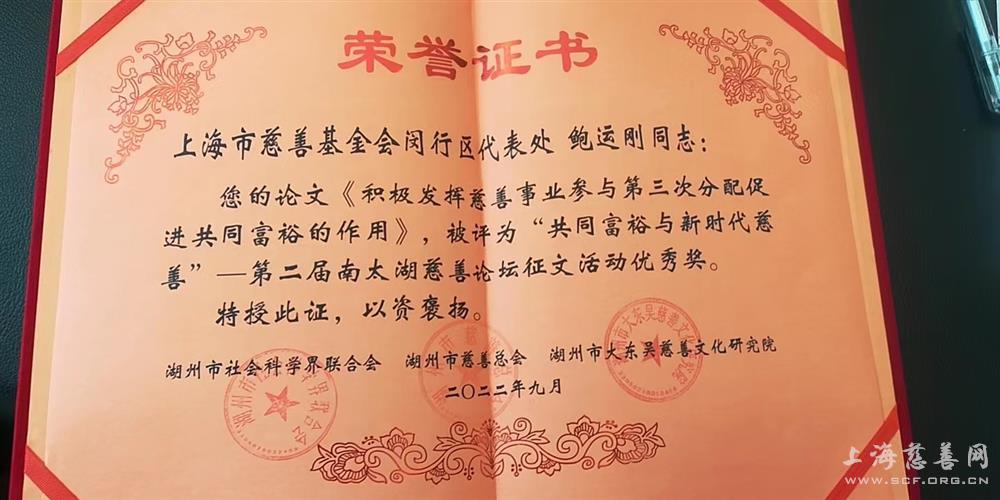 荣誉证书
上海市慈善基金会闵行区代表处 鲍运刚同志：
您的论文《积极发挥慈善事业参与第三次分配促
进共同富裕的作用》，被评为“共同富裕与新时代慈
善”—第二届南太湖慈善论坛征文活动优秀奖。
特授此证，以资褒扬。
湖州市社会科学界联合会 湖州市慈善总会 湖州市大东吴慈善文化研究院
二〇二二年九月
上海慈善网
www.SCF.ORG.CN